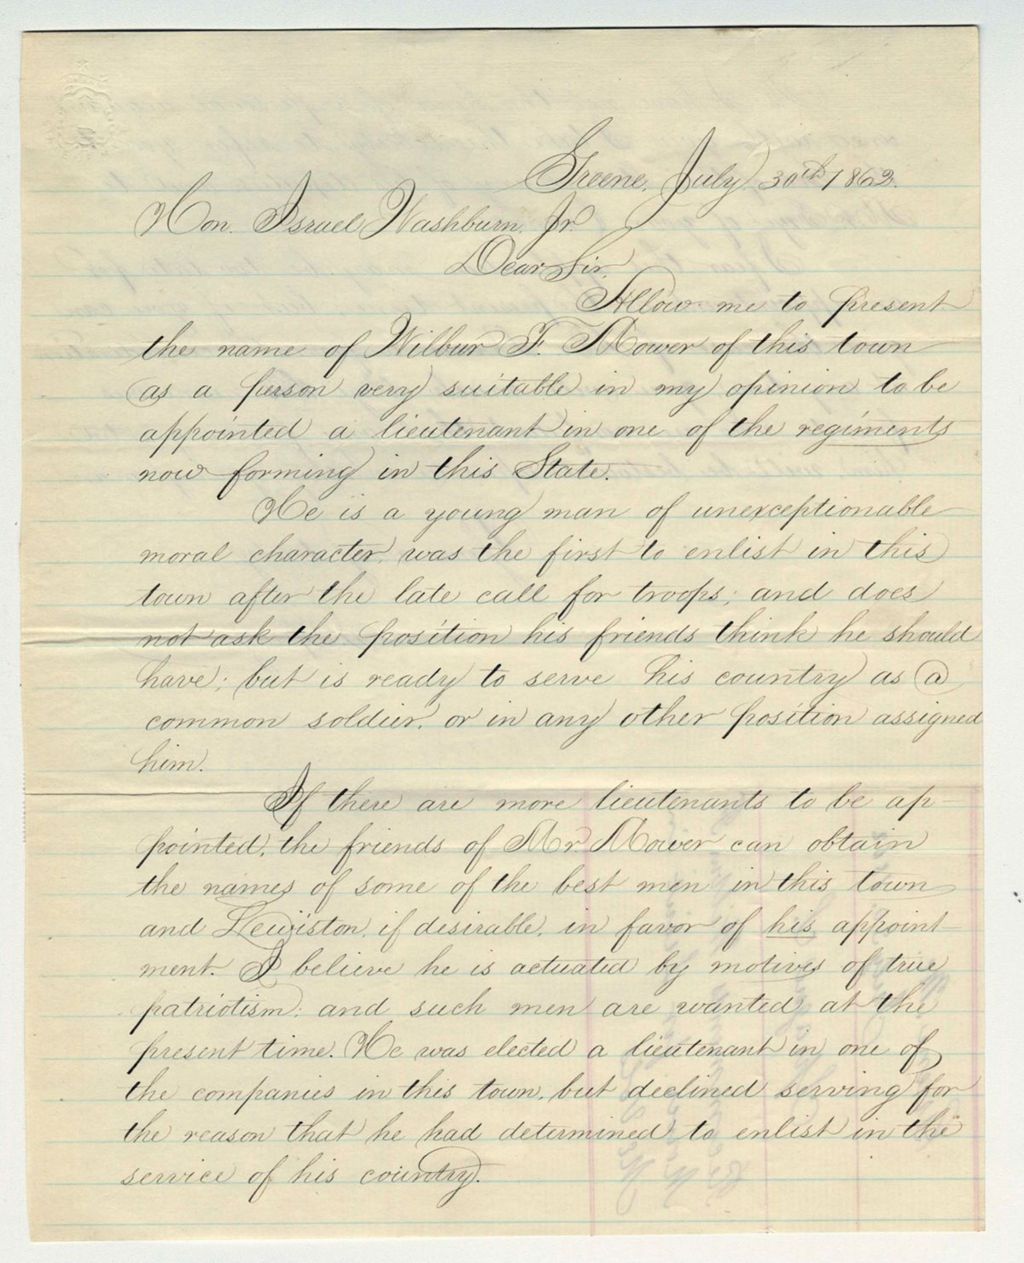 Greene, July 30th 1862.
Hon. Israel Washburn, Jr.
Dear Sir,
Allow me to present
the name of Wilbur F. Mower of this town
as a person very suitable in my opinion to be
appointed a lieutenant in one of the regiments
now forming in this State.
He is a young man of unexceptionable
moral character, was the first to enlist in this
town after the late call for troops; and does
not ask the position his friends think he should
have; but is ready to serve his country as a
common soldier, or in any other position assigned
him.
If there are more lieutenants to be ap-
pointed, the friends of Mr. Mower can obtain
the names of some of the best men in this town
and Lewiston, if desirable, in favor of his appoint-
ment. I believe he is actuated by motives of true
patriotism; and such men are wanted at the
present time. He was elected a lieutenant in one of
the companies in this town, but declined serving for
the reason that he had determined to enlist in the
service of his country.